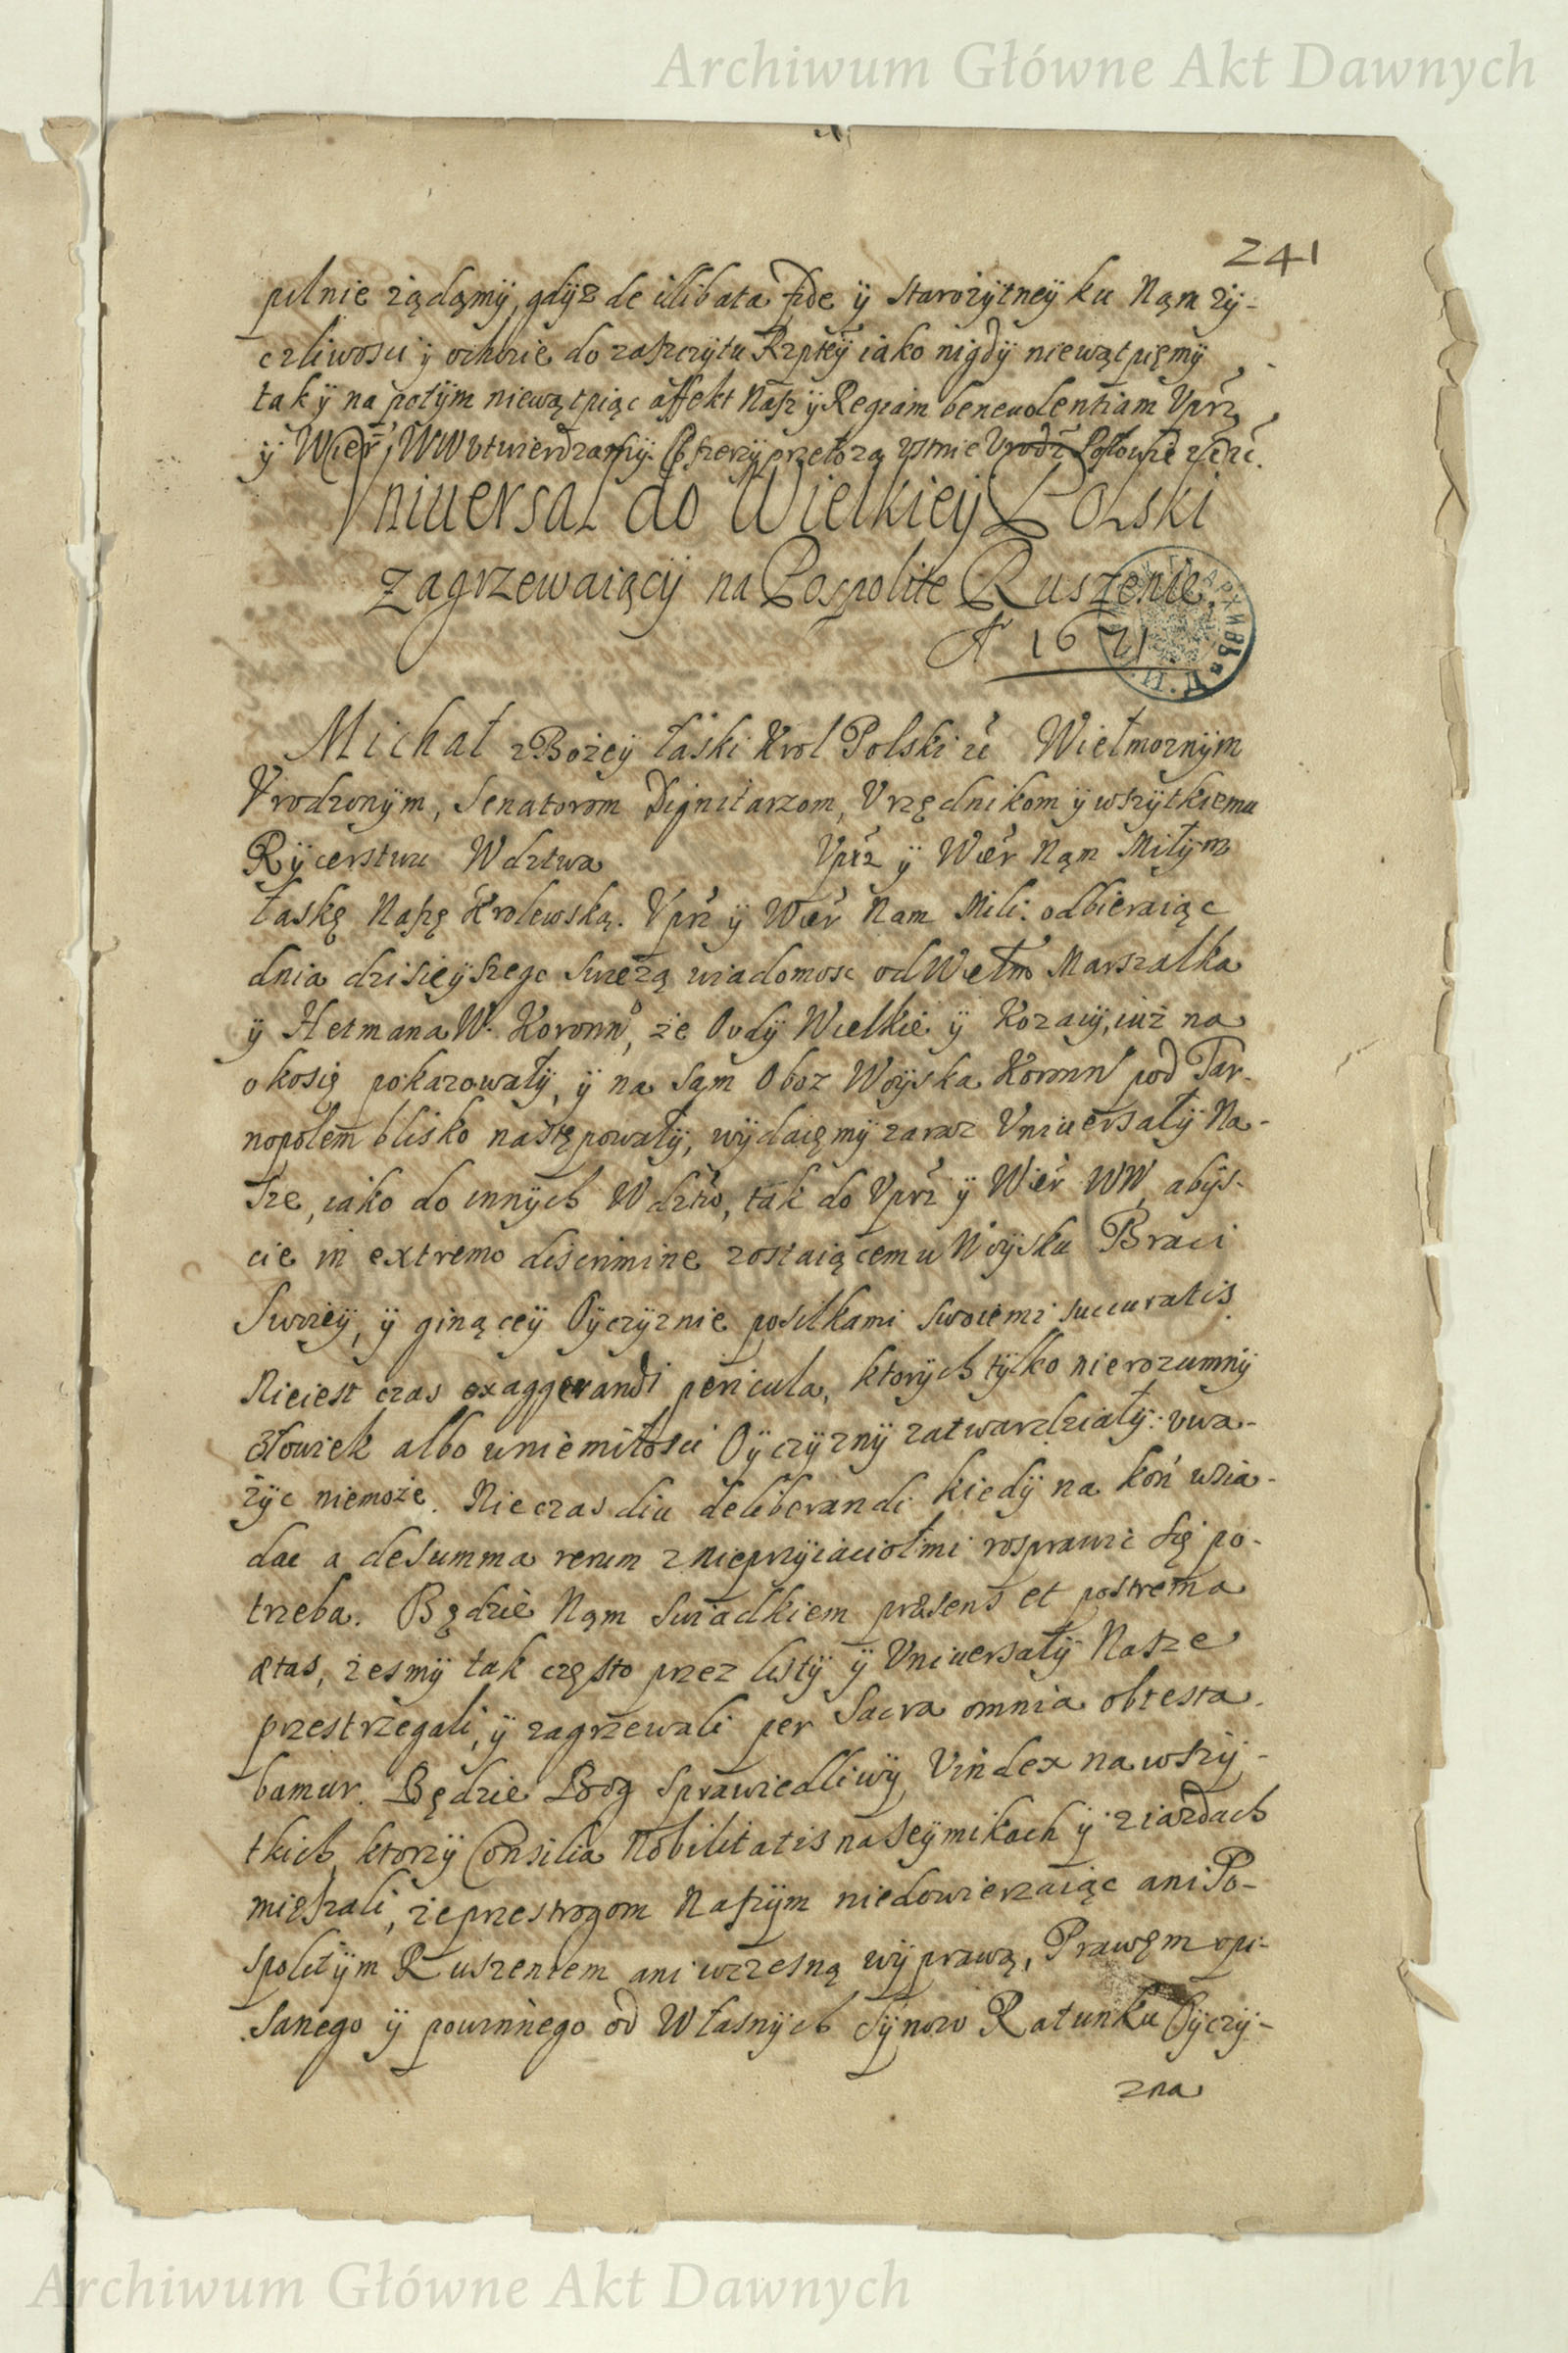 Archiwum Główne Akt Dawnych
241
pilnie ządąmÿ, gdÿz de illibata fide ÿ starozÿtneÿ ku Nąm zÿ-
czliwosci ÿ ochocie do zaszczÿtu Rzpteÿ iako nigdÿ niewątpięmÿ,
tak ÿ na potÿm niewątpiąc affekt Nasz ÿ Regiam beneuolentiam Vprz
ÿ Wier WW vtwierdzamÿ. Szerzÿ przełozą ustnie Vrodź Posłowie
Vniuersał do Wielkieÿ Polski
Zagrzewaiącÿ na Pospolite Ruszenie.
A 1671
Michał z Bozeÿ łaski Krol Polski Wielmoznÿm
Vrodzonÿm, Senatorom Dignitarzom, Vrzędnikom ÿ wszÿtkiemu
Rÿcerstwu Wdztwa Vprz ÿ Wier Nąm Miłÿm
łaskę Naszę Krolewską. Vprz ÿ Wier Nam Mili: odbieraiąc
dnia dzisieÿszego swiezą wiadomosc od Wielm Marszałka
ÿ Hetmana W. Koronno, ze Ordÿ Wielkie ÿ Kozacÿ, iuz na
oko się pokazowałÿ, ÿ na sąm Oboz Woÿska Koronn pod Tar-
nopolem blisko następowałÿ, wÿdaięmÿ zaraz Vniuersałÿ Na-
sze, iako do innÿch Wdztw, tak do Vprz ÿ Wier WW, abÿs-
cie in extremo discrimine zostaiącemu Woÿsku Braci
Swoieÿ, ÿ ginąceÿ Oÿczÿznie posiłkami swoiemi succuratis.
Nieiest czas exaggerandi pericula, ktorÿch tÿlko nierozumnÿ
człowiek albo w niemiłosci Oÿczÿznÿ zatwardziałÿ: vwa-
zÿc niemoze. Nie czas diu deliberandi kiedÿ na koń wsia-
dac a de summa rerum z nieprzÿiaciołmi rosprawic się po-
trzeba. Będzie Nąm swiadkiem præsens et postrema
ætas, zesmÿ tak często przez listÿ ÿ Vniuersałÿ Nasze
przestrzegali, ÿ zagrzewali per Sacra omnia obtesta-
bamur. Będzie Bog sprawiedliwÿ Vindex na wszÿ-
tkich, ktorzÿ Consilia Nobilitatis na Seÿmikach ÿ ziazdach
mięszali, ze przestrogom Naszÿm niedowierzaiąc ani Po-
spolitÿm Ruszeniem ani wczesną wÿprawą, Prawęm opi-
sanego ÿ powinnego od Własnÿch Sÿnow Ratunku Oÿczÿ-
zna
Archiwum Główne Akt Dawnych